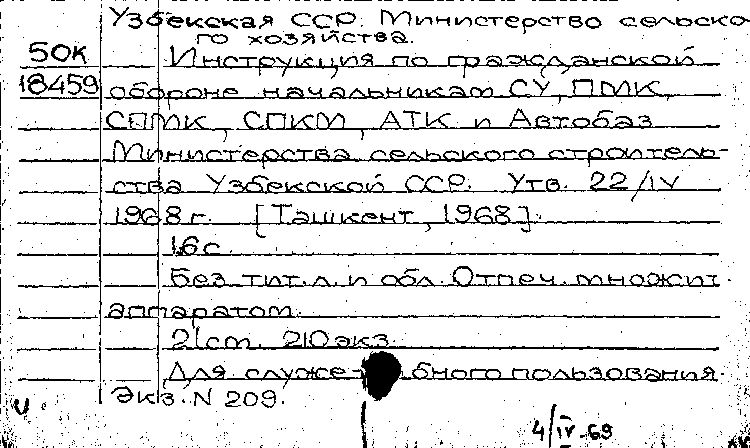 Узбекская ССР. Министерство сельско
го хозяйства.
50к Инструкция по гражданской
18459 обороне начальникам СУ, ПМК,
СПМК, СПКМ, АТК и Автобаз
Министерства сельского строитель-
ства Узбекской ССР. Утв. 22/IV
1968 г. [Ташкент, 1968].
16 с.
Без тит. л. и обл. Отпеч. множит.
аппаратом.
21 cm. 210 экз.
Для служебного пользования.
Экз. N 209.
4/IV-69